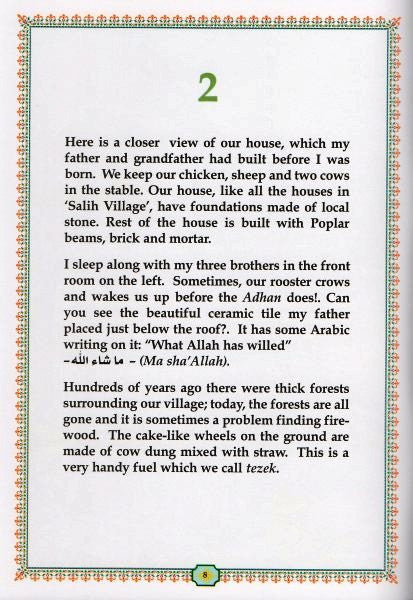 2
Here is a closer view of our house, which my
father and grandfather had built before I was
born. We keep our chicken, sheep and two cows
in the stable. Our house, like all the houses in
'Salih Village', have foundations made of local
stone. Rest of the house is built with Poplar
beams, brick and mortar.
I sleep along with my three brothers in the front
room on the left. Sometimes, our rooster crows
and wakes us up before the Adhan does!. Can
you see the beautiful ceramic tile my father
placed just below the roof?. It has some Arabic
writing on it: "What Allah has willed"
– ما شاء الله – (Ma sha'Allah).
Hundreds of years ago there were thick forests
surrounding our village; today, the forests are all
gone and it is sometimes a problem finding fire-
wood. The cake-like wheels on the ground are
made of cow dung mixed with straw. This is a
very handy fuel which we call tezek.
8